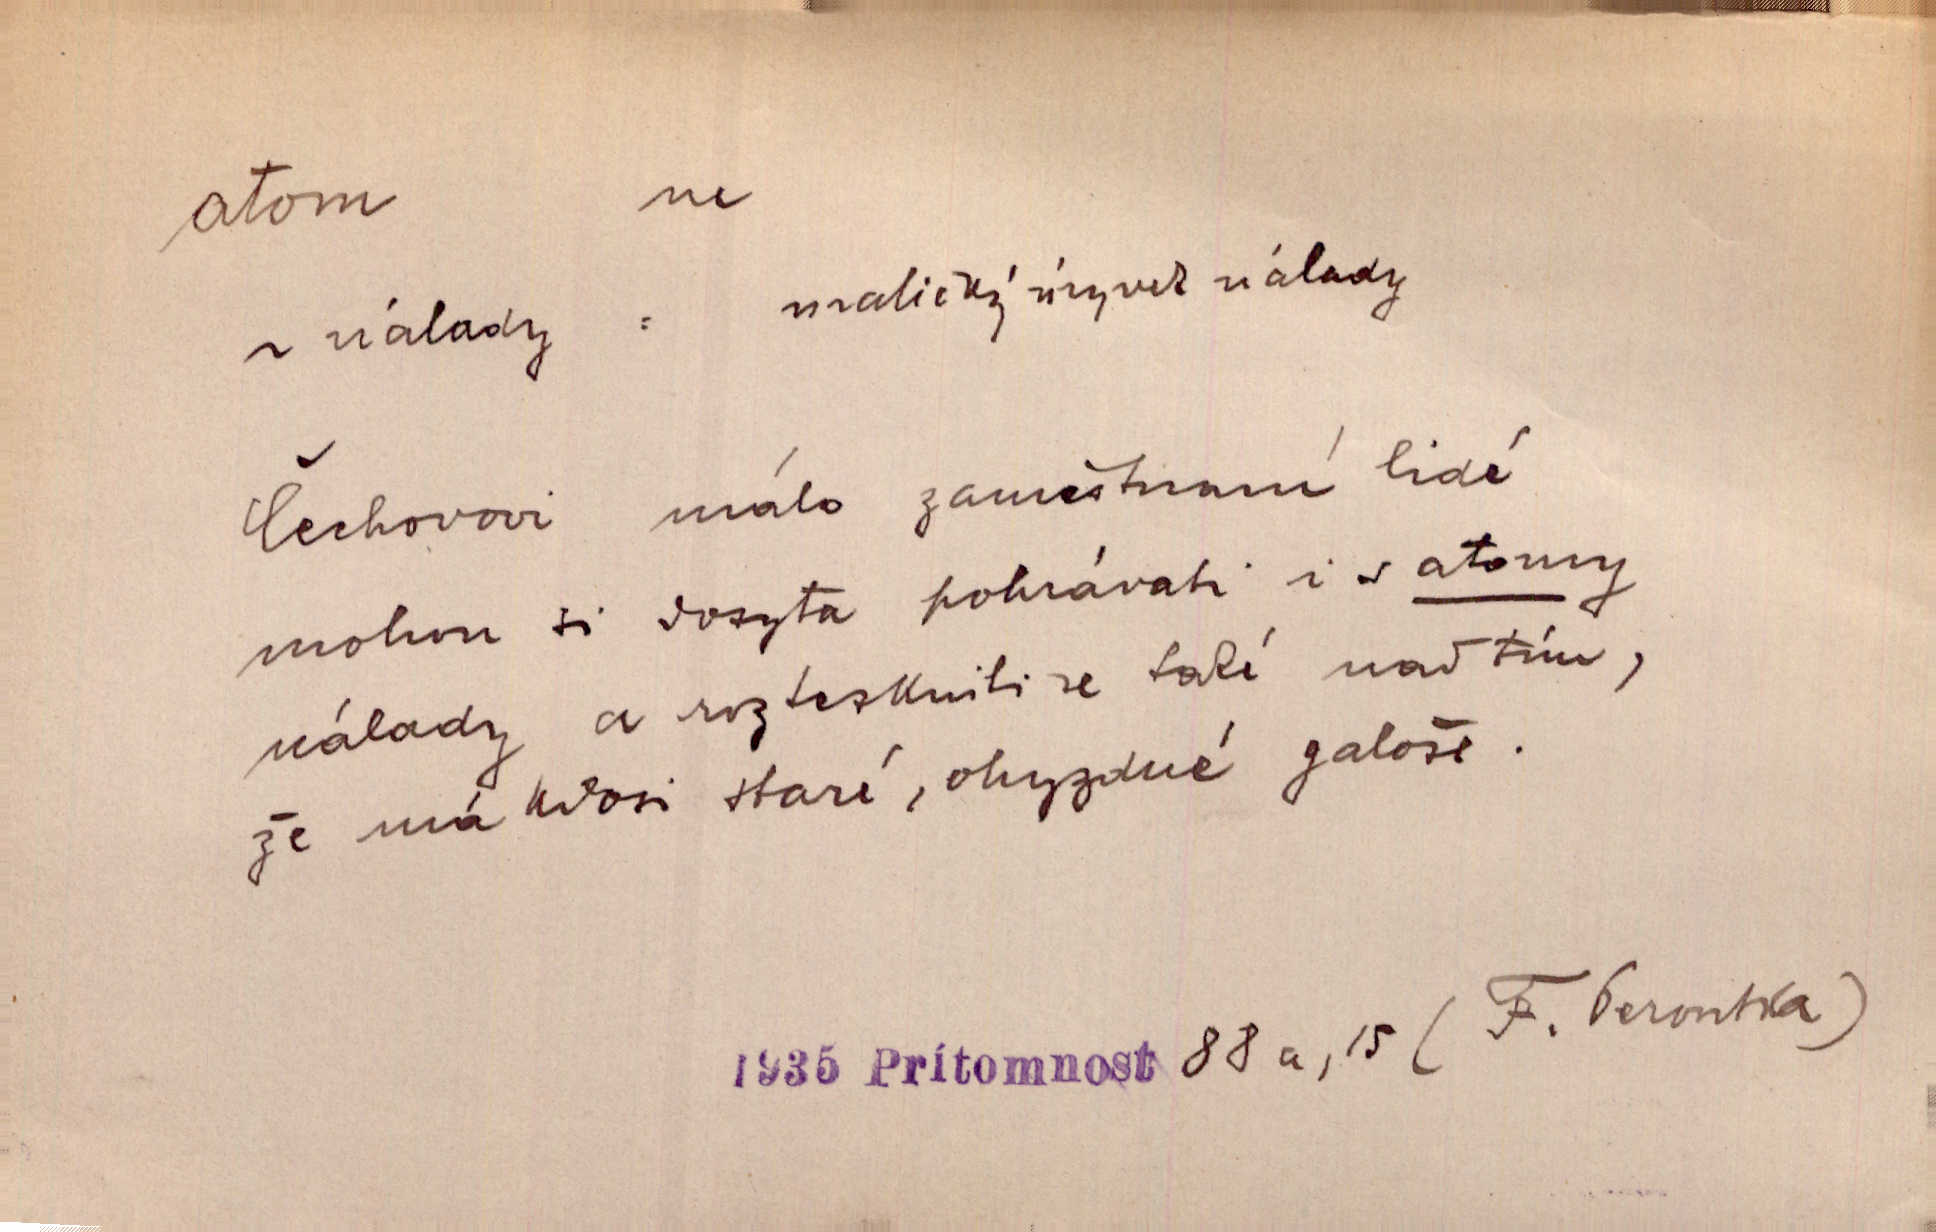 atom ne
~ nálady = maličký úryvek nálady
Čechovovi málo zaměstnaní lidé
mohou si dosyta pohrávati i s atomy
nálady a rozteskniti se také nad tím,
že má kdosi staré, ohyzdné galoše.
1935 Prítomnost 88 a, 15 (F. Peroutka)